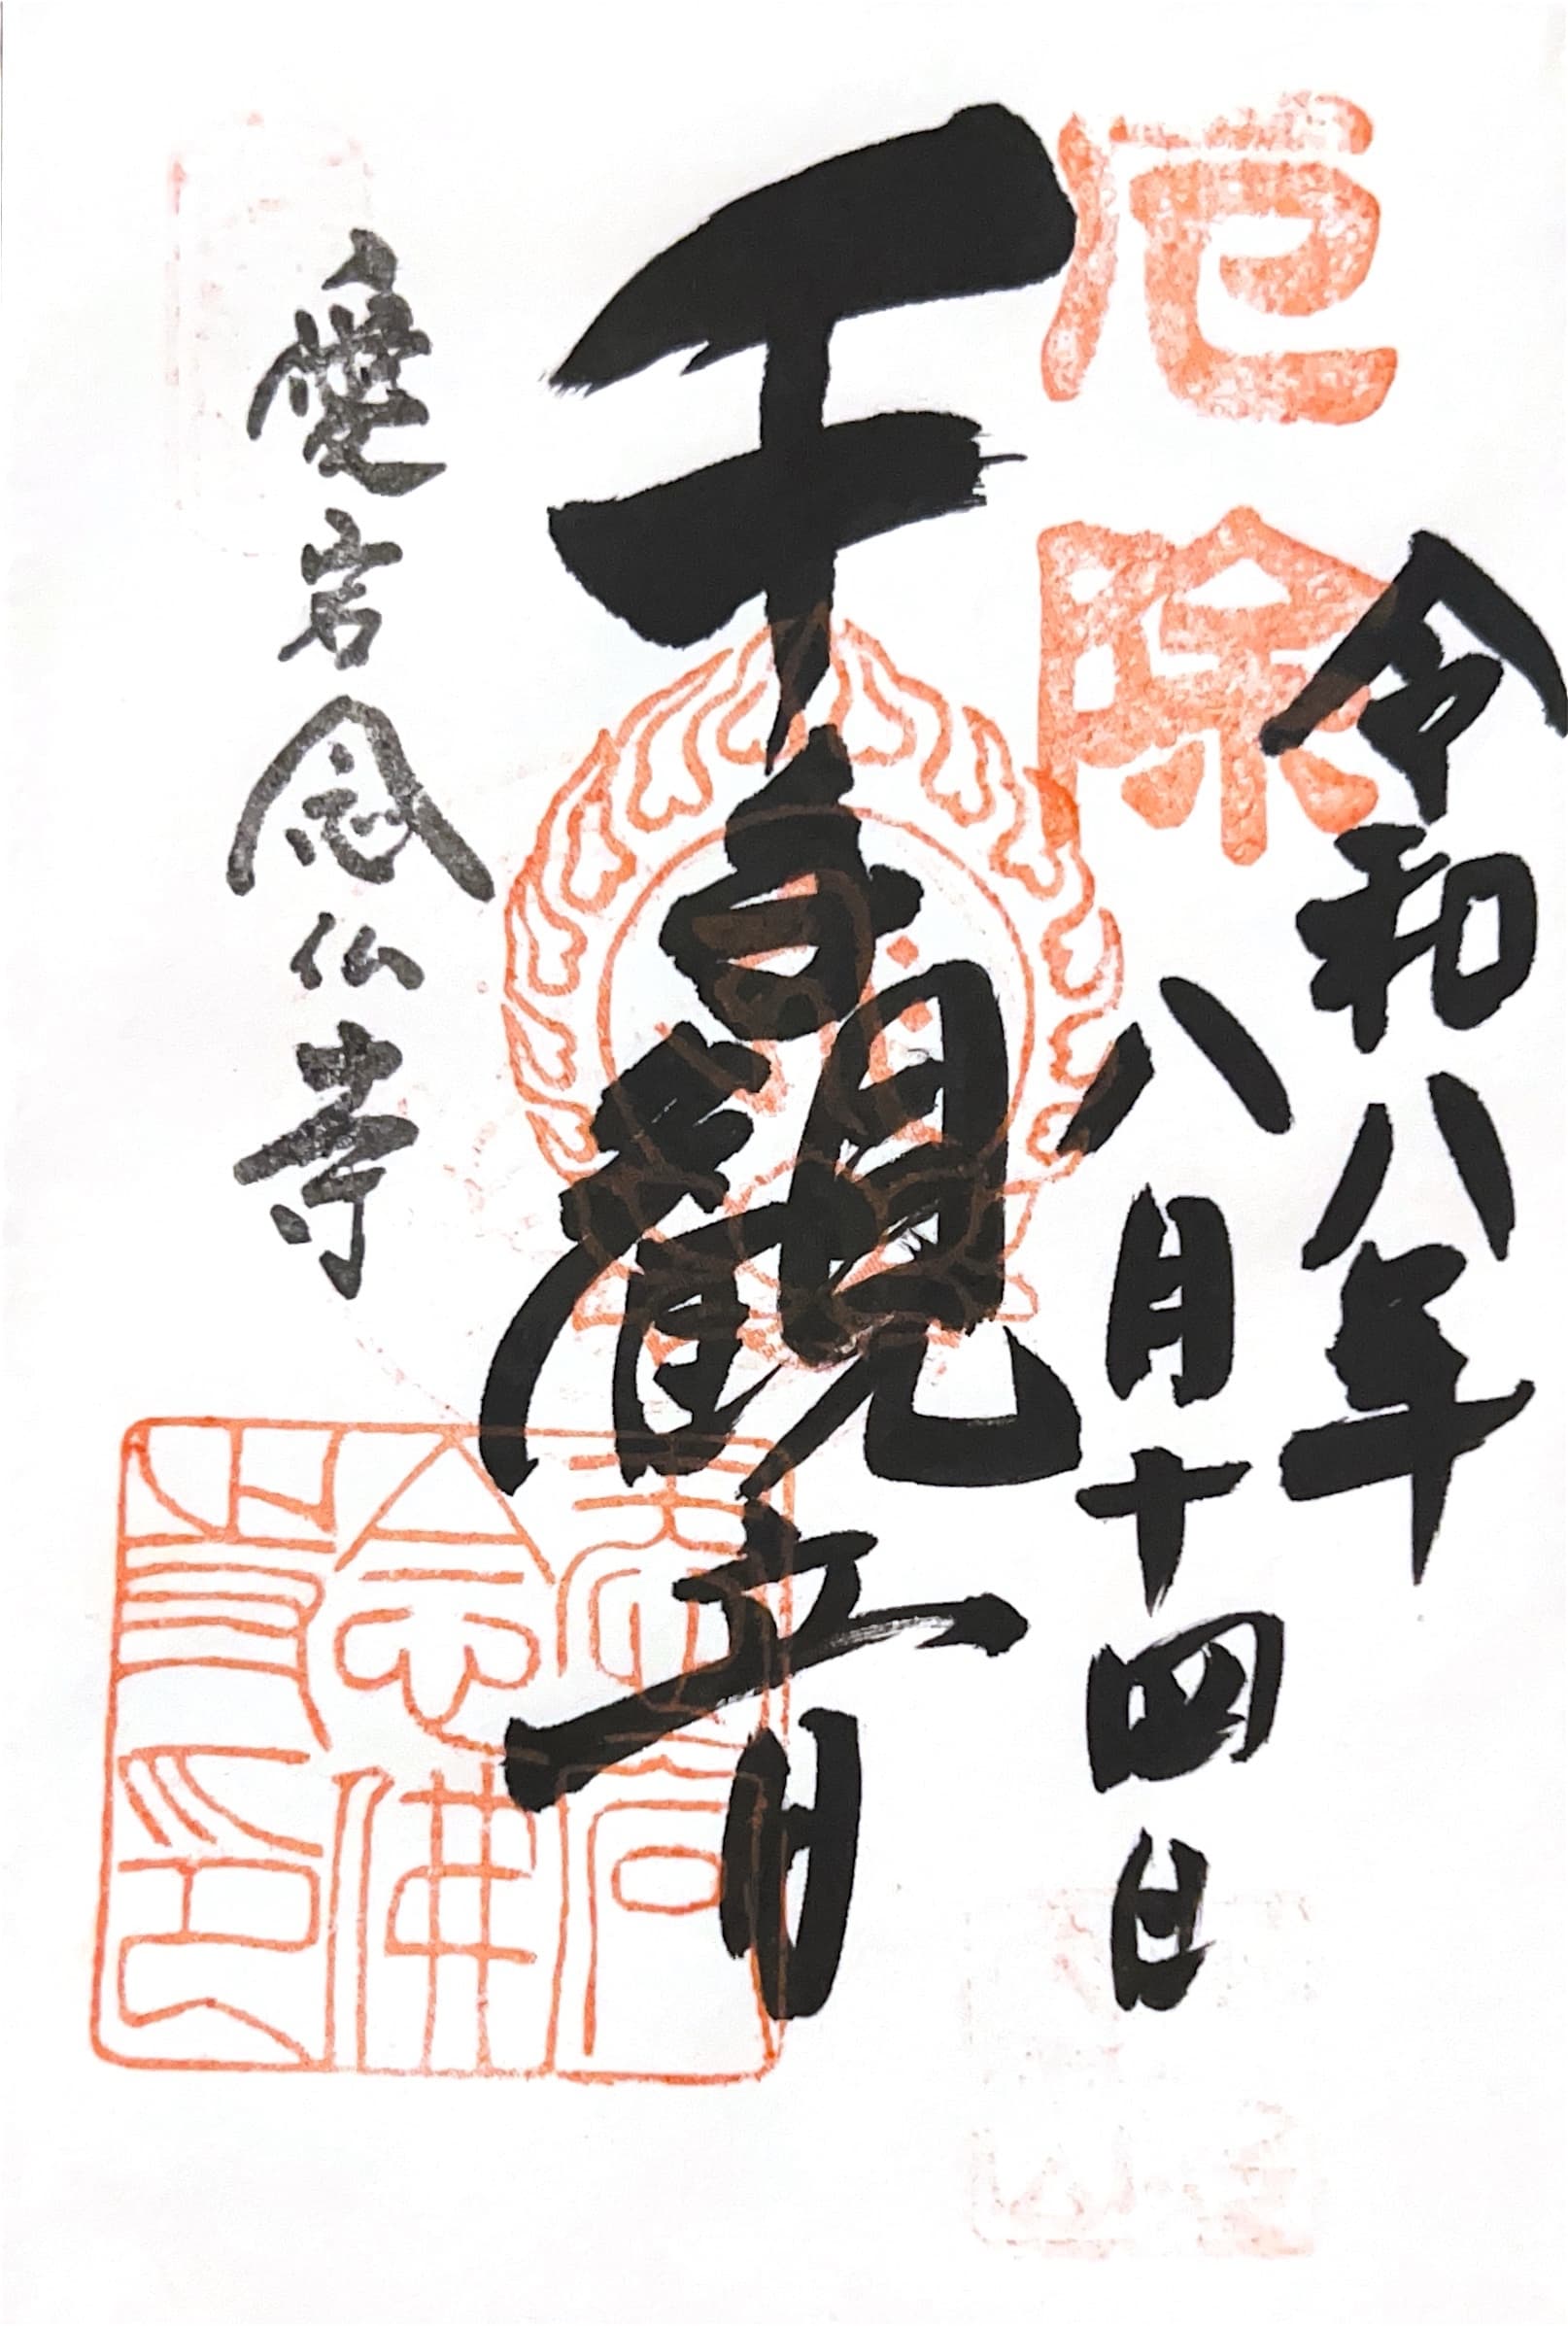 厄除
令和八年
八月十四日
千手観音
愛宕念仏寺
愛宕
念佛
寺印